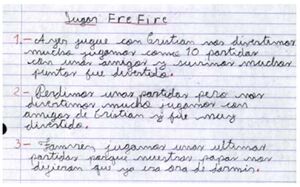 Jugar Fre Fire
1.- Ayer jugue con Cristian nos divertimos
mucho jugamos como 10 partidas
con unos amigos y sumimos muchos
puntos fue divertido.
2.- Perdimos unas partidas pero nos
divertimos mucho jugamos con
amigos de Cristian y fue muy
divertido.
3.- Tamvien jugamos unas ultimas
partidas porque nuestros papas nos
dejieron que ya era ora de dormir.